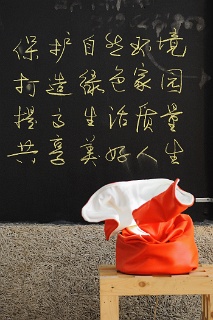 保护自然环境
打造绿色家园
提高生活质量
共享美好人生